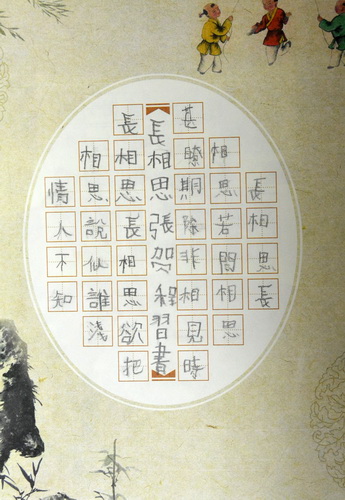 長相思長
相思若問相思
甚瞭期除非相見時
長相思張贺程習書
長相思長相思欲把
相思說似誰淺
情人不知